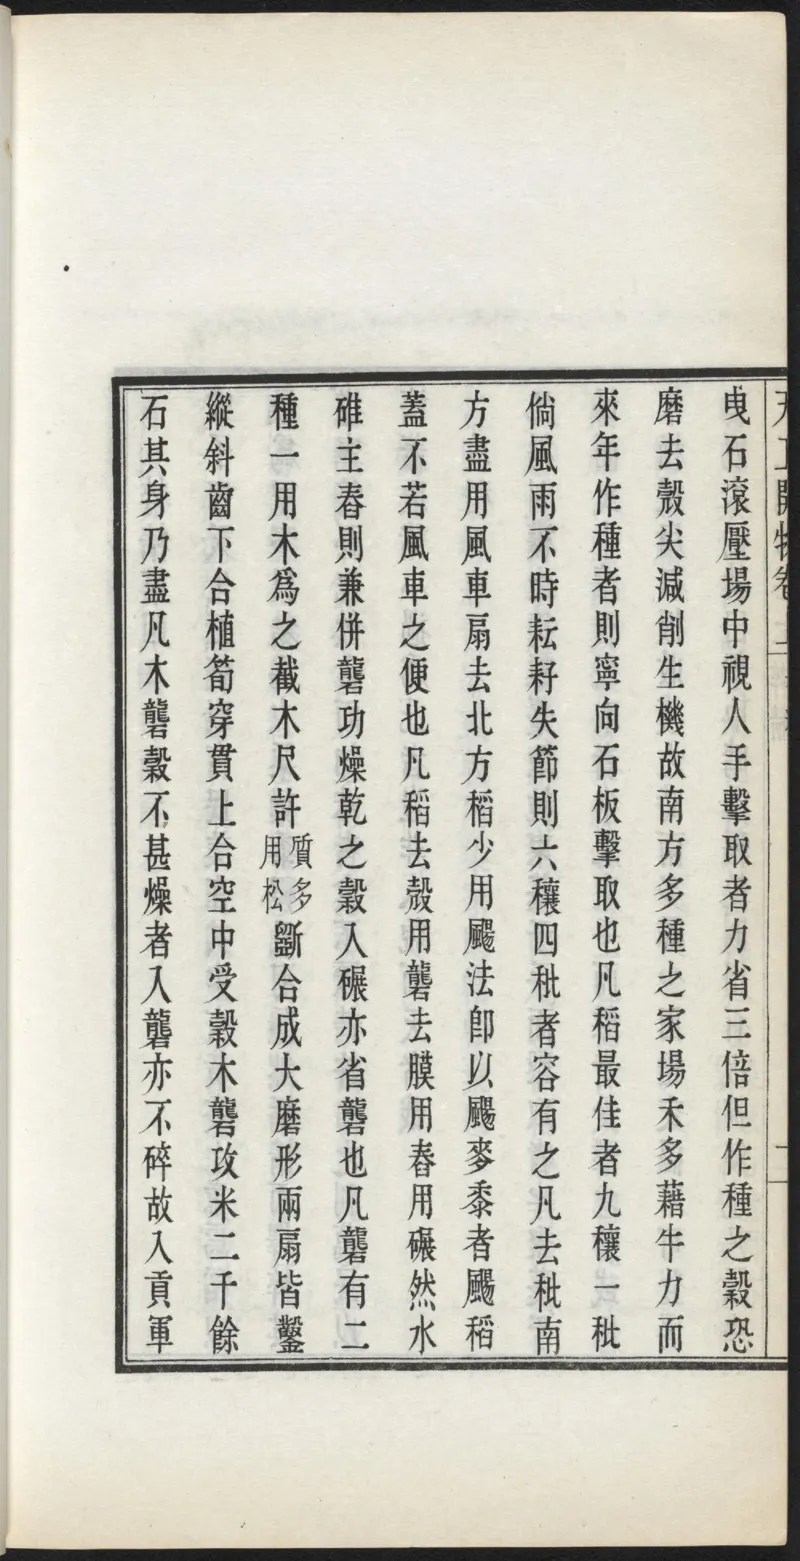 天工開物卷上
二
曳石滾壓場中視人手擊取者力省三倍但作種之穀恐
磨去殼尖減削生機故南方多種之家場禾多藉牛力而
來年作種者則寧向石板擊取也凡稻最佳者九穰一秕
倘風雨不時耘耔失節則六穰四秕者容有之凡去秕南
方盡用風車扇去北方稻少用颺法卽以颺麥黍者颺稻
蓋不若風車之便也凡稻去殼用礱去膜用舂用碾然水
碓主舂則兼併礱功燥乾之穀入碾亦省礱也凡礱有二
種一用木爲之截木尺許質多用松斵合成大磨形兩扇皆鑿
縱斜齒下合植筍穿貫上合空中受穀木礱攻米二千餘
石其身乃盡凡木礱穀不甚燥者入礱亦不碎故入貢軍